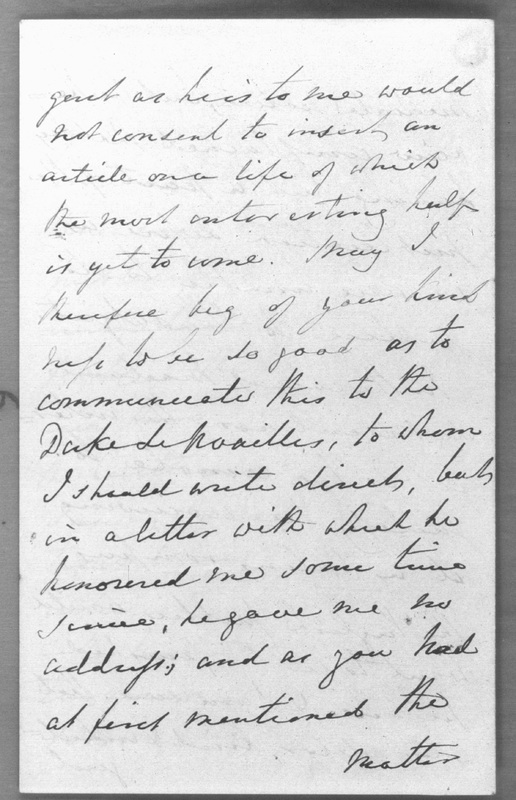 gent as he is to me would
not consent to insert an
article on a life of which
the most interesting half
is yet to come. May I
therefore beg of your kind
ness to be so good as to
communicate this to the
Duke de Noailles, to whom
I should write direct, but
in a letter with which he
honored me some time
since, he gave me no
address; and as you had
at first mentioned the
matter